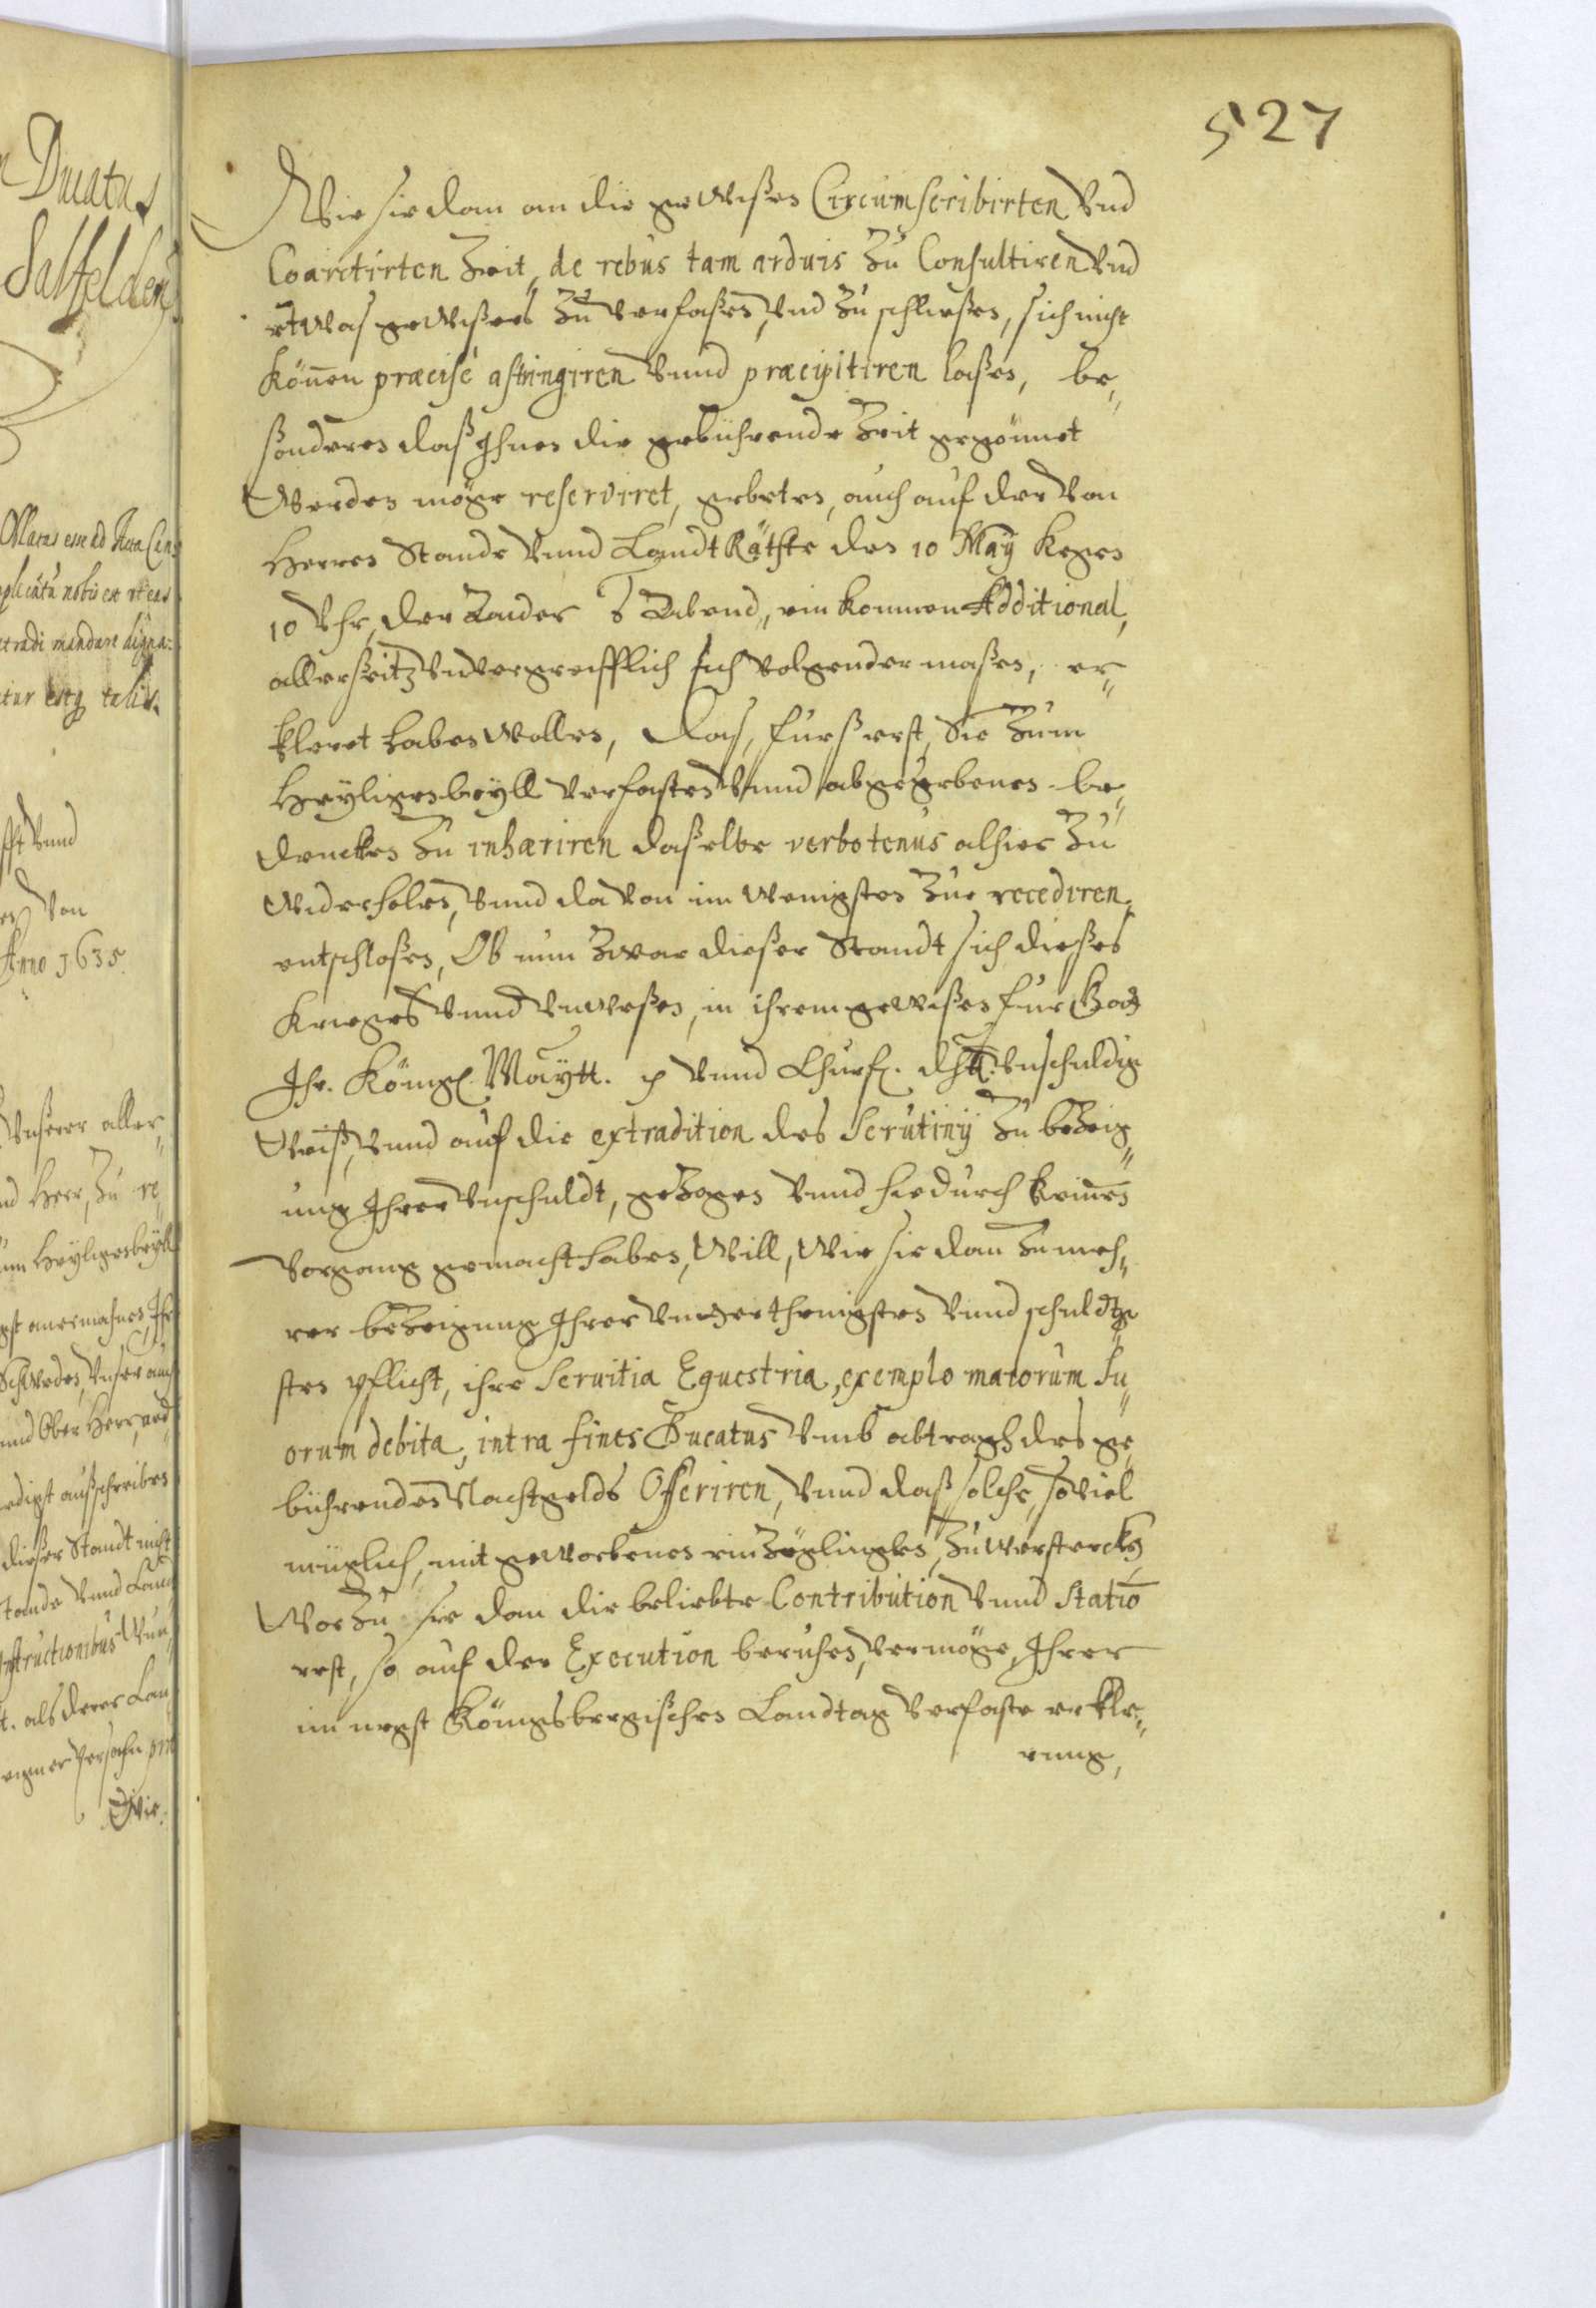 527
Wie sie dan an die gewißen Circumscribirten Vnd
Coarctirten Zeit, de rebus tam arduis Zu Consultiren Vnd
etwas gewißes Zu Verfaßen, Vnd Zu schließen, sich nicht
können præcisé astringiren Vnnd præcipitiren laßen, be„
sonderen daß Ihnen die gebührende Zeit gegönnet
Werden möge reserviret, gebeten, auch auf der Von
Herren Stande Vnnd Landt Räthe den 10 May kegen
10 Vhr, der Abend, ein kommen Additional,
allerseitz Vnvergreifflich sich Volgender maßen, er„
kleret haben Wollen, Das, fürs erst, Sie Zum
Heyligenbeyll Verfasten Vnnd abgegebenen be„
dencken Zu inhæriren daßelbe verbotenus alhier Zu
Widerholen, Vnnd da Von im Wenigsten Zue recediren,
entschloßen, Ob nun Zwar dießer Standt sich dießes
Krieges Vnnd Vnweßen, in ihrem gewißen für Gott
Ihr. Königl. Maytt. Vnnd Churf. dhtt. Vnschuldig
Weiß, Vnnd auf die extradition des Scrutinij Zu bezeig„
ung Ihrer Vnschuldt, gezogen Vnnd hiedurch keinen
Vorgang gemacht haben, Will, Wie sie dan Zu meh„
rer bezeigung Ihrer Vnderthenigsten Vnnd schuldig„
sten pflicht, ihre Seruitia Equestria, exemplo maiorum su„
orum debita, intra fines Ducatus Vmb abtragh des ge„
bührenden Nachtgelds Offeriren, Vnnd daß solche, so Viel
müglich, mit geworbenen einzöglingen, Zu Verstercken
Wor Zu sie dan die beliebte Contribution Vnnd Statio
erst, so auf der Execution beruhen, Vermöge, Ihrer
im negst Königsbergischen Landtag Verfaste erkle„
rung,
Ducatus
Salfelden
Anno 1635.
Vnserer aller„
nd Herr, Zu re„
um Heyligenbeyll
dießer Standt nicht
stande Vnnd Land
Instructionibus
Wie